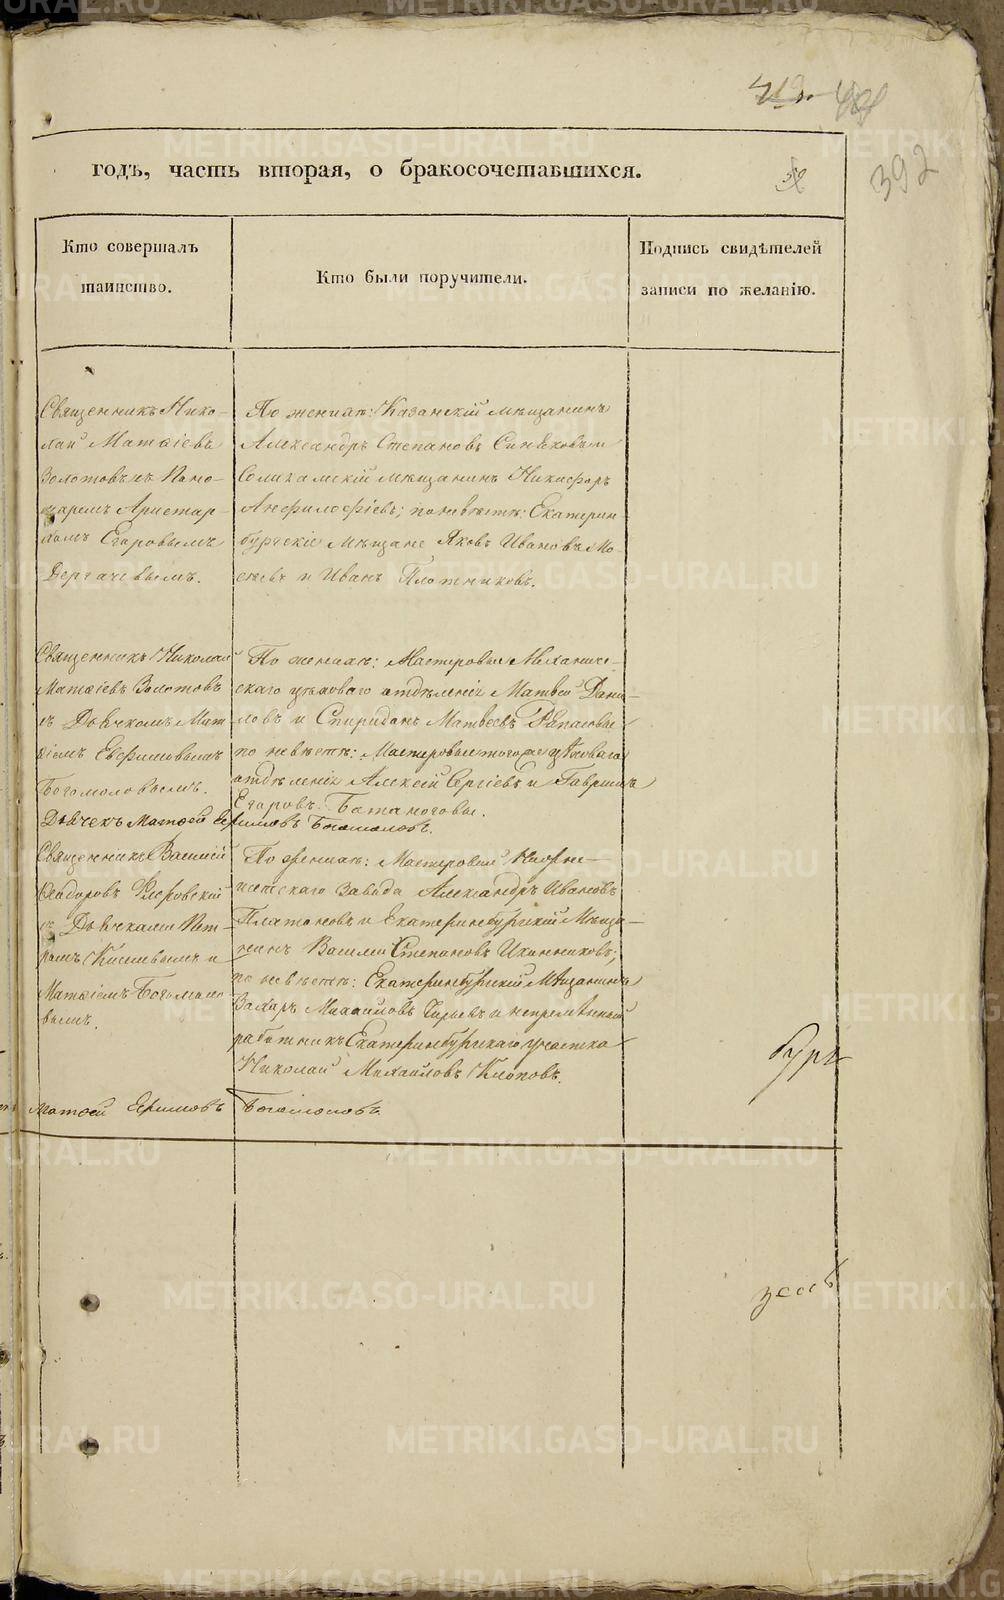 392
годъ, часть вторая, о бракосочетавшихся.
Кто совершалъ
таинство.
Кто были поручители.
Подпись свидѣтелей
записи по желанію.
Священникъ Нико-
лай Матѳіевъ
Золотовъ съ Поно-
маремъ Аристар-
хомъ Егоровымъ
Дергачевымъ.
По женихѣ: Казанскій мѣщанинъ
Александръ Степановъ Синяковъ и
Соликамскій мѣщанинъ Никифоръ
Анфилофіевъ; по невѣстѣ: Екатерин
бургскіе Мѣщане Яковъ Ивановъ Мо-
сѣевъ и Иванъ Плотниковъ.
Священникъ Николай
Матѳіевъ Золотовъ
съ Дьячкомъ Мат-
ѳіемъ Евфимовымъ
Богомоловымъ.
По женихѣ: Мастеровые Механиче-
скаго цѣховаго отдѣленія Матвей Дани-
ловъ и Спиридонъ Матвеевъ
по невѣстѣ: Мастеровые того же цѣховаго
отдѣленія Алексѣй Сергіевъ и Гавріилъ
Егоровъ Батаноговы.
Дьячекъ Матѳей Ефимовъ Богомоловъ.
Священникъ Василій
Ѳеодоровъ Флеровскій
съ Дьячками Пет-
ромъ Киселевымъ и
Матѳіемъ Богомоло
вымъ.
По женихѣ: Мастеровый Нижне-
исетскаго Завода Александръ Ивановъ
Платоновъ и Екатеринбургскій Мѣща-
нинъ Василій Степановъ Иконниковъ;
по невѣстѣ: Екатеринбургскій Мѣщанинъ
Захаръ Михайловъ и непремѣнный
работникъ Екатеринбургскаго участка
Николай Михайловъ Клоповъ.
Матѳей Ефимовъ Богомоловъ.
METRIKI.GASO-URAL.RU